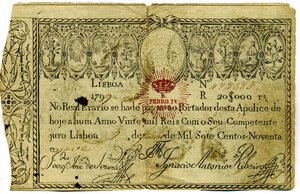 LISBOA Nº
179 R 20$000 rs
PEDRO IV
1826
No Real Erario se hade pagar ao Portador desta Apolice de
hoje a hum Anno Vinte mil Reis Com o Seu Competente
juro Lisboa de de Mil Sete Centos Noventa
Ignacio Antonio Ribeiro